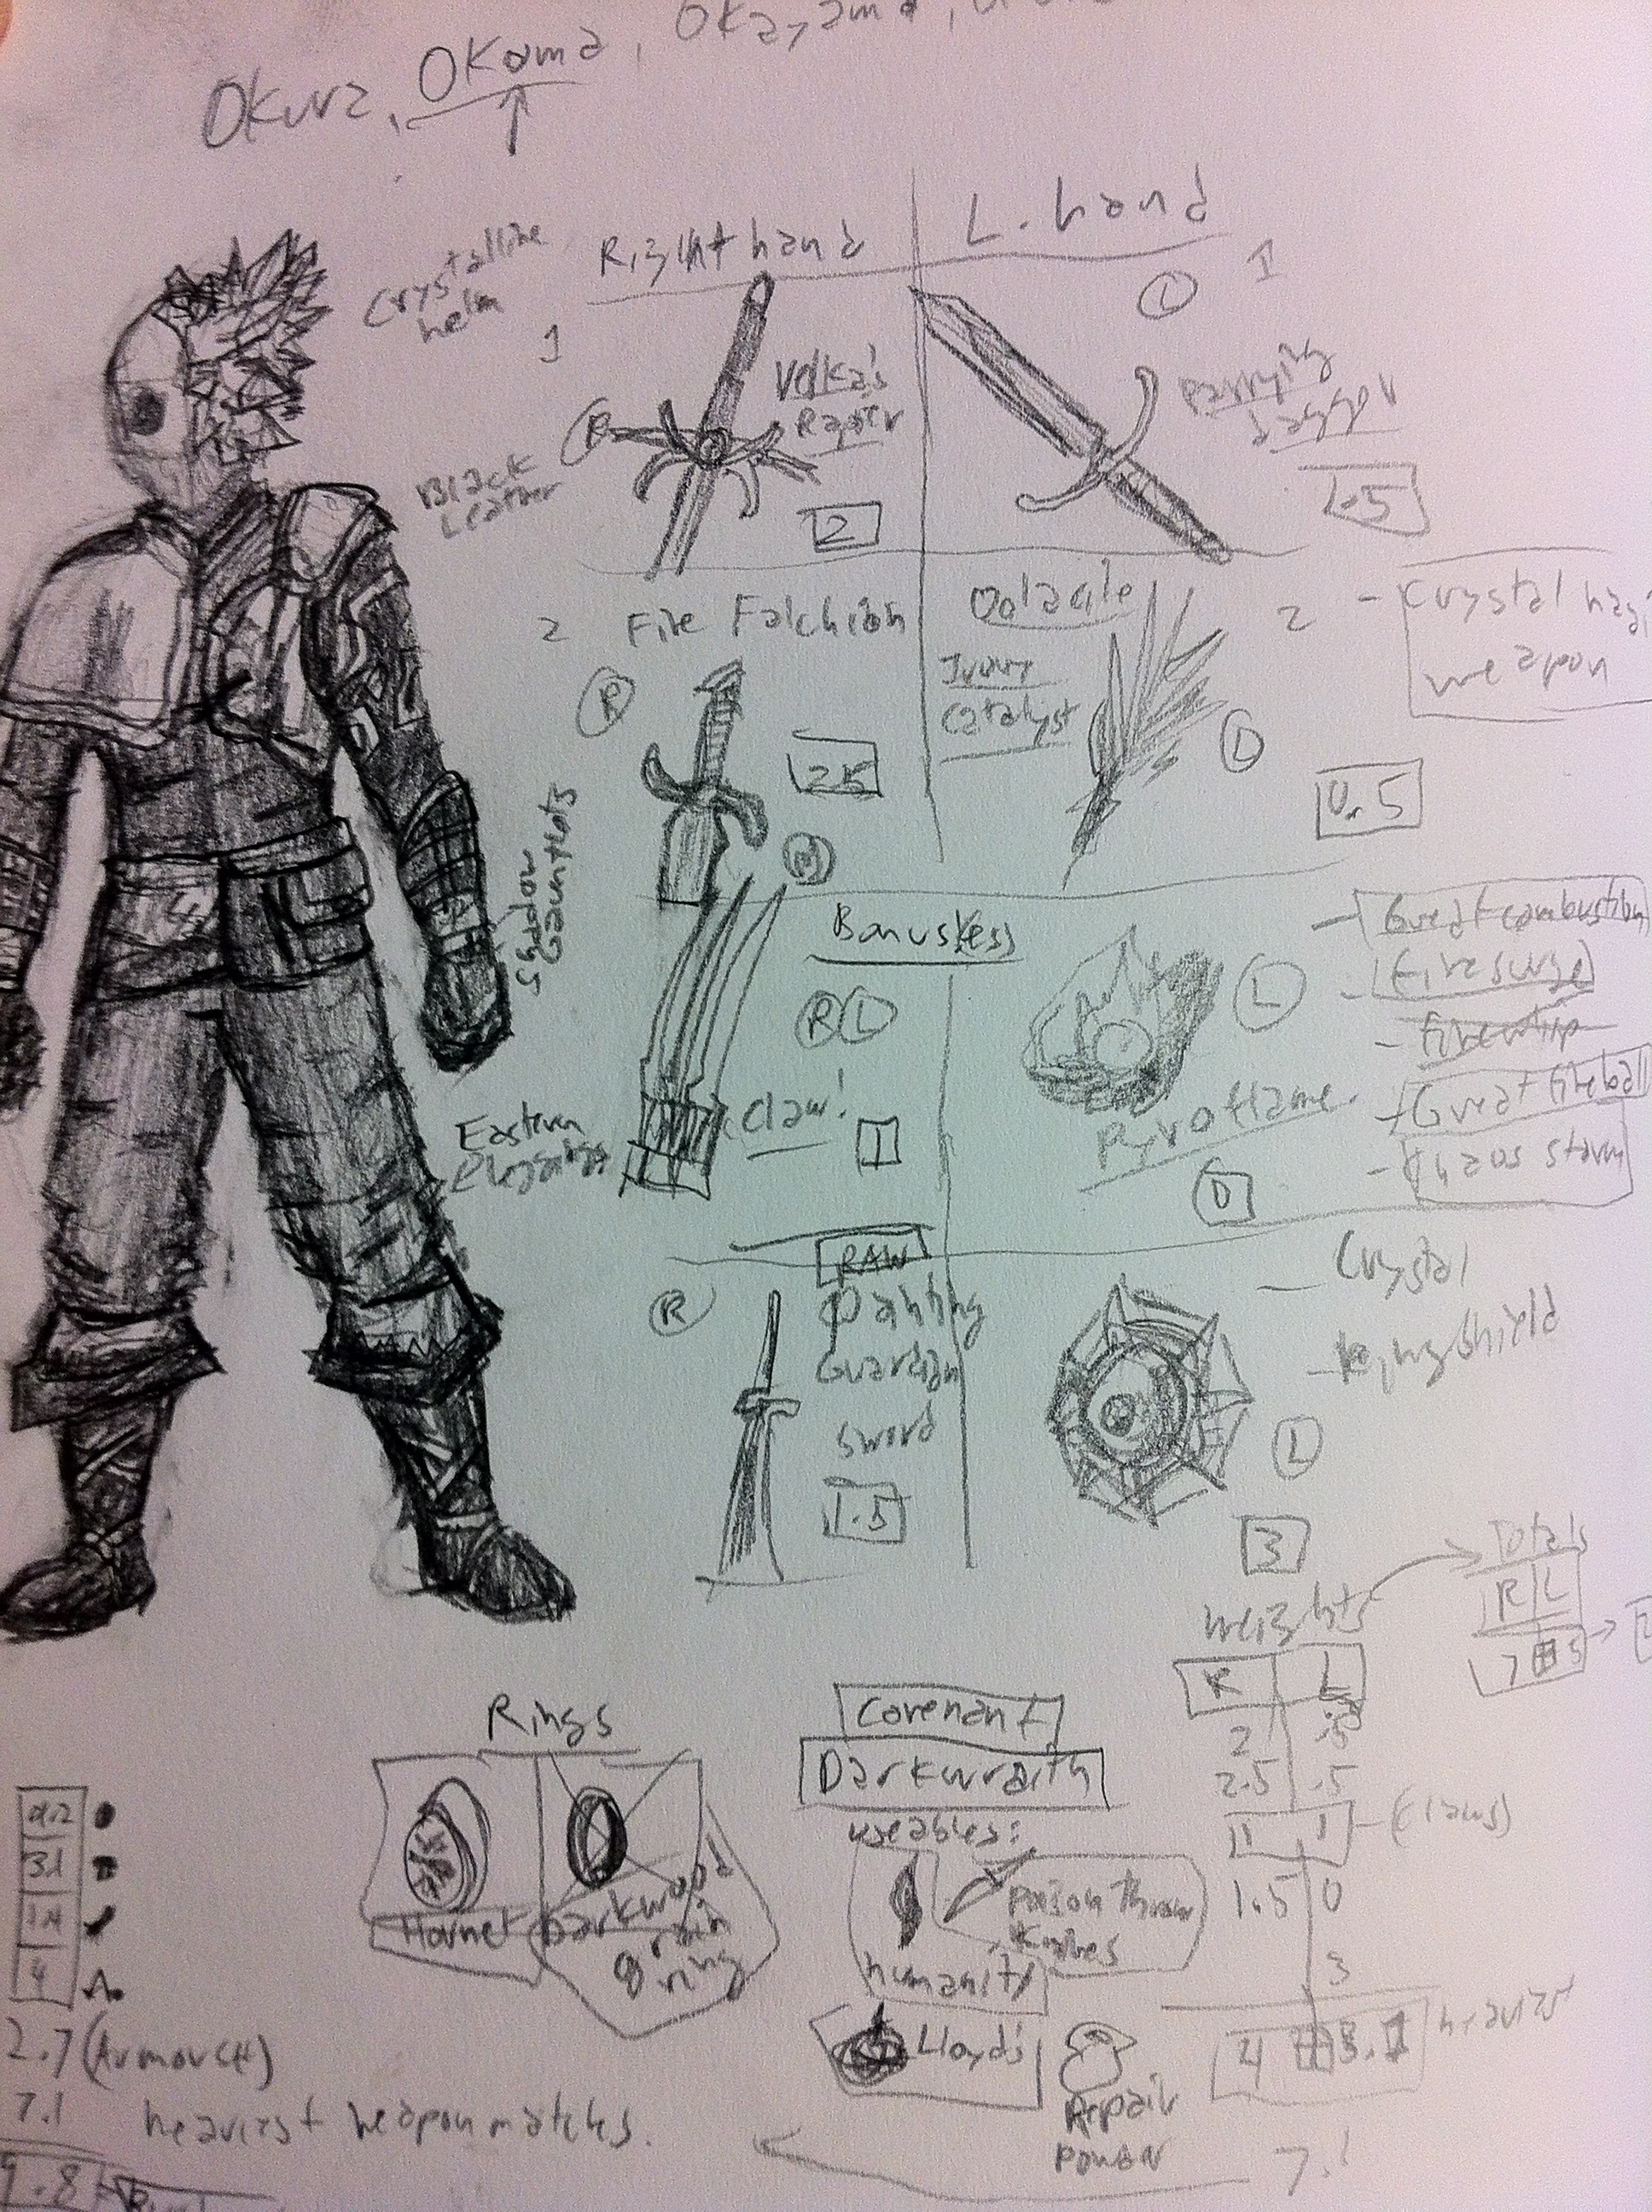 Okura, Okama, Okayama,
Crystalline
helm
Right hand
L. hand
1
L
1
R
Volka's
Rapier
Parrying
Dagger
Black
Leather
2
.5
2
Fire Falchion
R
2.5
Ivory
Catalyst
2
- Crystal
weapon
L
0.5
Shadow
Gauntlets
R
Bonus(es)
R L
Claw!
1
L
Pyroflame
0
- Great combustion
- Fire surge
- Fire whip
- Great fireball
- Chaos storm
Eastern
Leggings
RAW
R
Painting
Guardian
sword
1.5
- Crystal
- Ring shield
L
3
Weights
Totals
R L
7 5
R L
2 .5
2.5 .5
1 1 - (Claws)
1.5 0
3
4 3.1 heaviest
7.1
Rings
Hornet
Darkwood
grain
ring
Covenant
Darkwraith
useables:
humanity
Poison Throw
Knives
Lloyd's
Repair
Power
4
2.7 (Armour)
7.1 heaviest weapon matches.
9.8